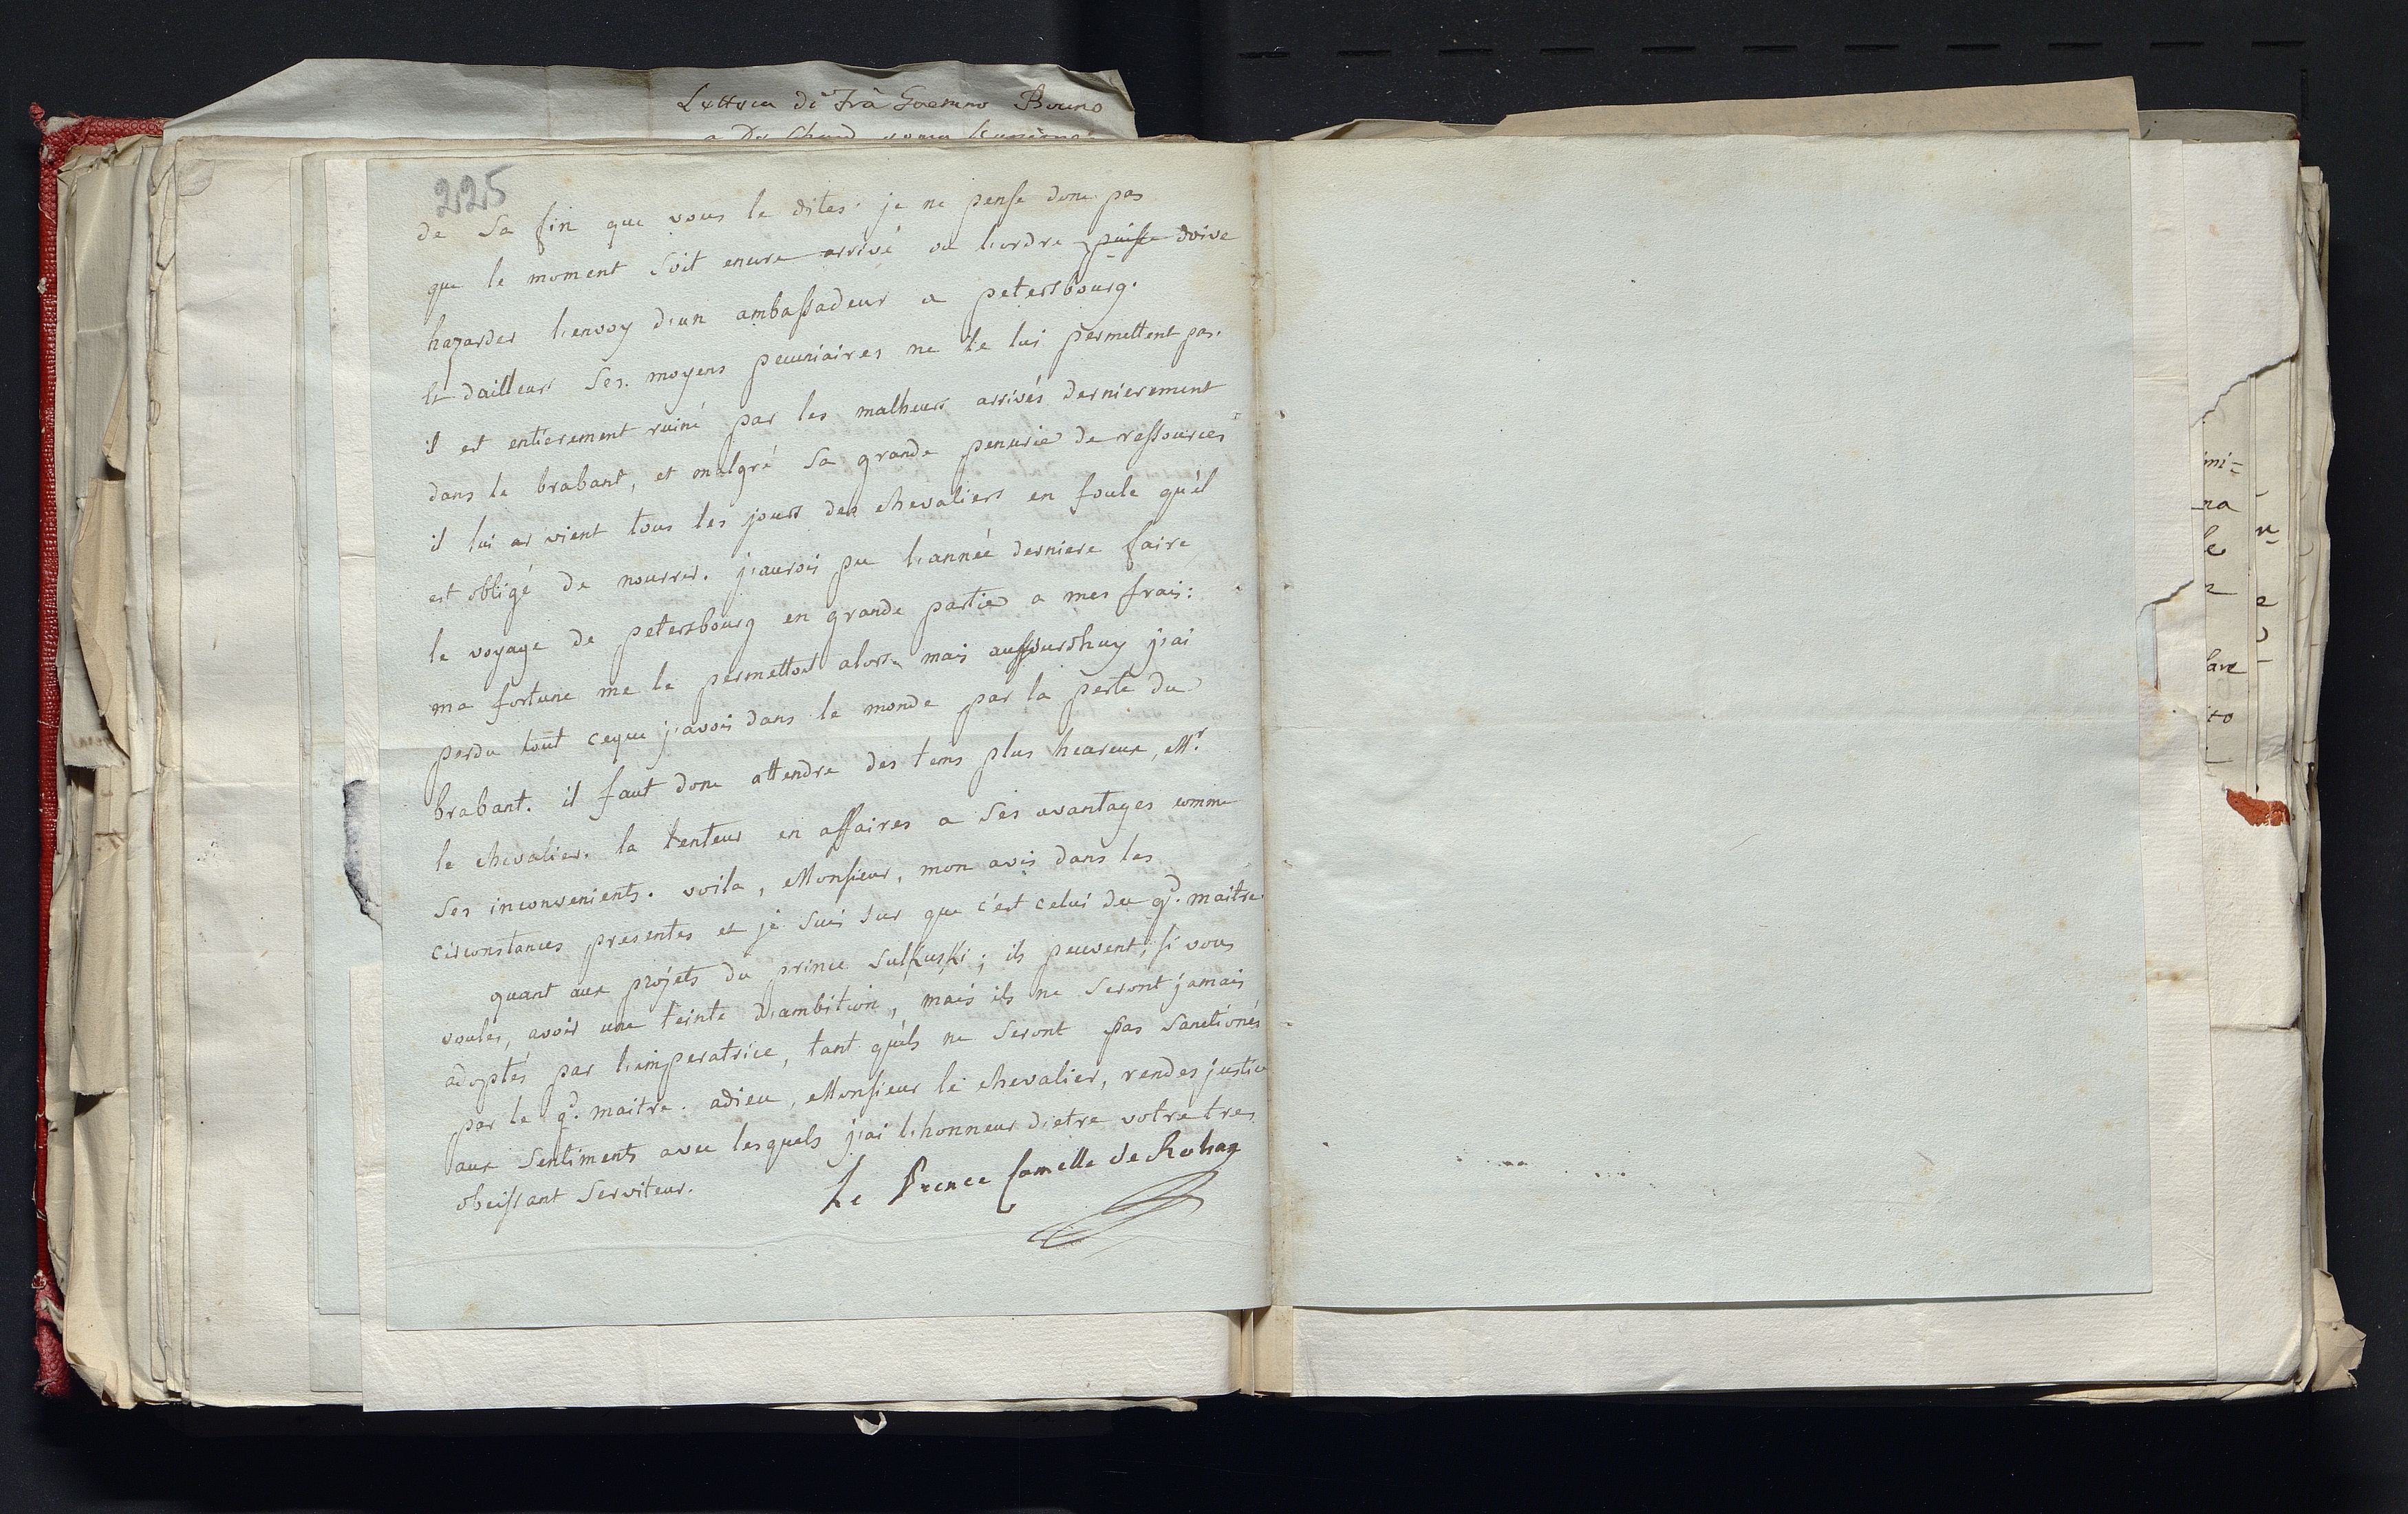 Lettera di Frà Gaetano Bruno
225
de sa fin que vous le dites. je ne pense donc pas
que le moment soit encore arrivé ou l'ordre puisse doive
hazarder l'envoy d'un ambassadeur a petersbourg.
Et dailleurs ses moyens pecuniaires ne le lui permettent pas.
il est entierement ruiné par les malheurs arrivés dernierement
dans le brabant, et malgré sa grande penurie de ressources
il lui ar vient tous les jours des chevaliers en foule qu'il
est obligé de nourrir. j'aurois pu l'année derniere faire
le voyage de petersbourg en grande partie a mes frais:
ma fortune me le permettoit alors mais aujjourdhuy j'ai
perdu tout ceque j'avois dans le monde par la perte du
brabant. il faut donc attendre des tems plus heureux, Mr
le chevalier. la lenteur en affaires a ses avantages comme
ses inconvenients. voila, Monsieur, mon avis dans les
circonstances presentes et je suis sur que c'est celui du gd. maitre.
quant aux projets du prince Sulkuski; ils peuvent, si vous
voules, avoir une teinte d'ambition, mais ils ne seront jamais
adoptés par l'imperatrice, tant qu'ils ne seront pas sanctionés
par le gd. maitre. adieu, Monsieur le chevalier, rendes justice
aux sentiments avec lesquels j'ai l'honneur d'etre votre tres
obeissant serviteur.
Le Prince Camille de Rohan
mi=
na
le
ito